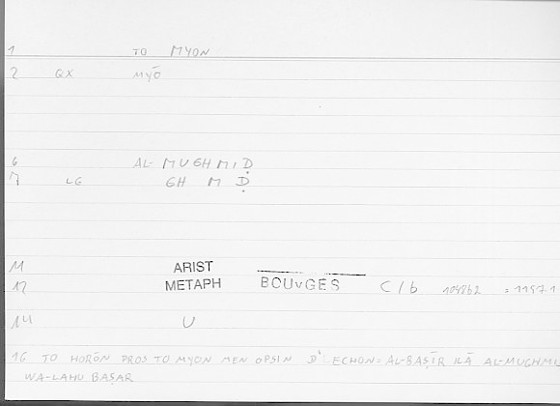 1 TO MYON
2 QX MYŌ
6 AL- MUGHMIḌ
7 LG GH M Ḍ
11 ARIST
12 METAPH BOUvGES C/b 1048b2 = 1197 1
14 U
16 TO HORŌN PROS TO MYON MEN OPSIN D' ECHON = AL-BAṢĪR ILĀ AL-MUGHMI
WA-LAHU BAṢAR